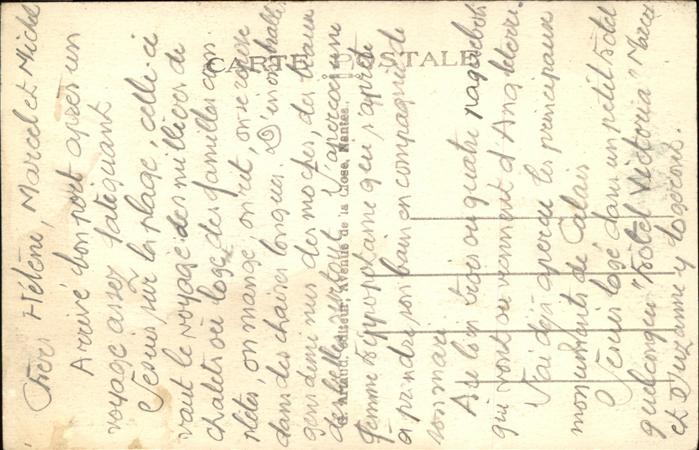 CARTE POSTALE
Artaud, éditeur, Avenue de la Close, Nantes.
Chers Hélène, Marcel et Michel
Arrivé à bon port après un
voyage assez fatiguant
Je suis sur la plage, celle-ci
vaut le voyage des milliers de
chalets où loge des familles com
plètes, on mange, on rit, on
dans des chaises longues. D'innombrables
gens demi nus des moches, des beaux
de belles surtout. J'aperçois une
femme hippopotame qui s'apprête
à prendre son bain en compagnie de
son mari
Au loin trois ou quatre paquebots
qui vont ou viennent d'Angleterre.
J'ai déjà aperçu les principaux
monuments de Calais
Je suis logé dans un petit hotel
quelconque "Hotel Victoria" Marcel
et Suzanne y logerons.